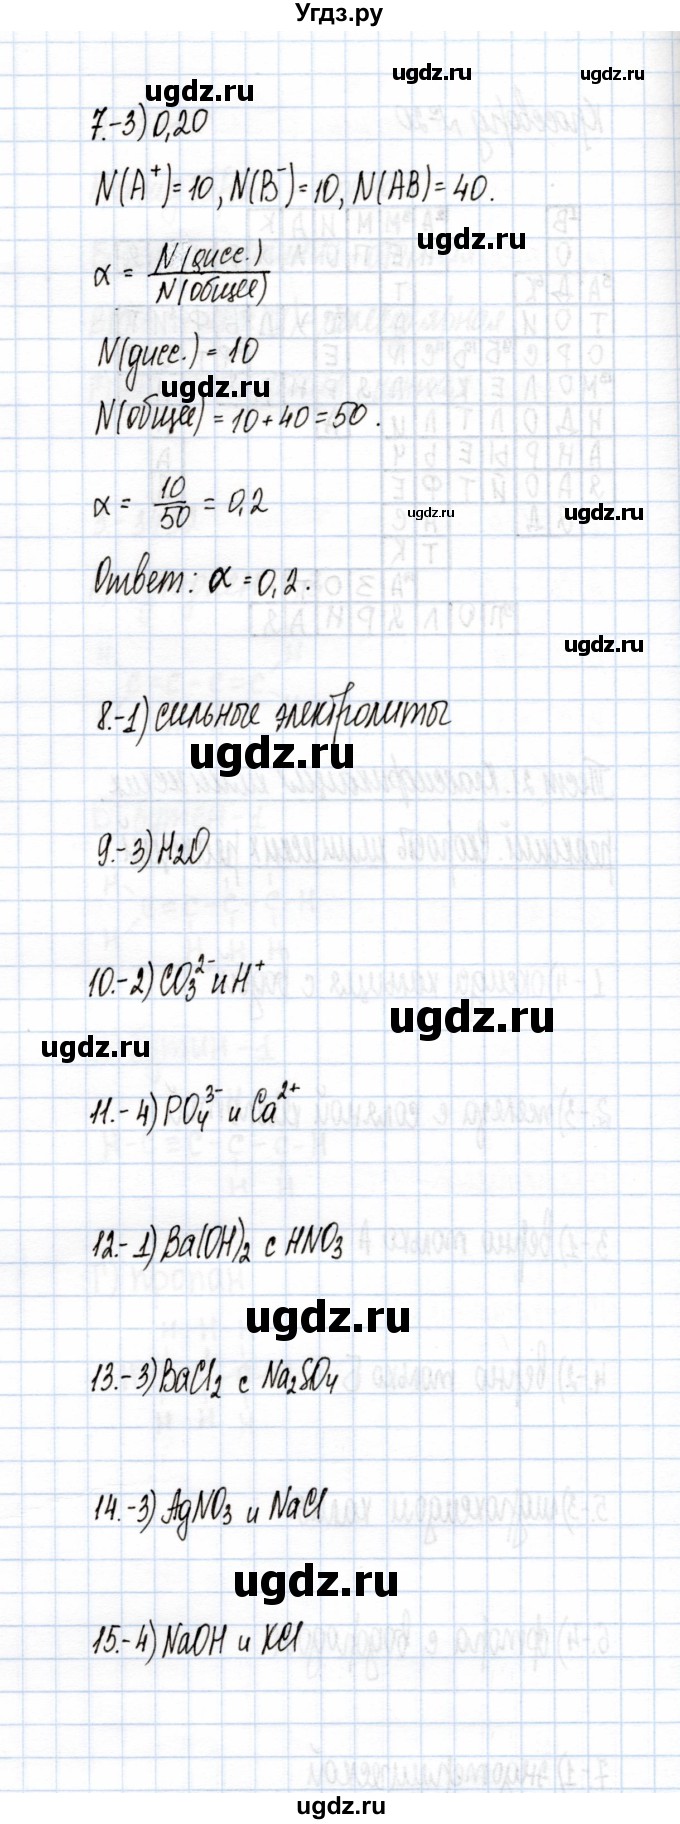 Угдз.ру
ugdz.ru ugdz.ru ugdz.ru
7.-3) 0,20
N(A⁺)=10, N(B⁻)=10, N(AB)=40.
ugdz.ru
α = N(дисс.) / N(общее)
N(дисс.) = 10
ugdz.ru
N(общее) = 10+40=50.
α = 10/50 = 0,2
ugdz.ru ugdz.ru
Ответ: α = 0,2.
ugdz.ru
8.-1) сильные электролиты
ugdz.ru
9.-3) H₂O
10.-2) CO₃²⁻ и H⁺
ugdz.ru
ugdz.ru
11.-4) PO₄³⁻ и Ca²⁺
12.-1) Ba(OH)₂ с HNO₃
ugdz.ru
13.-3) BaCl₂ с Na₂SO₄
14.-3) AgNO₃ и NaCl
ugdz.ru
15.-4) NaOH и KCl
ugdz.ru